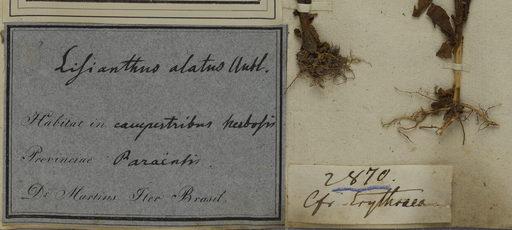 Lisianthus alatus Aubl.
Habitat in campestribus herbosis
Provinciae Paraënsis.
Dr Martius Iter Brasil.
2870.
Cfr Erythraea